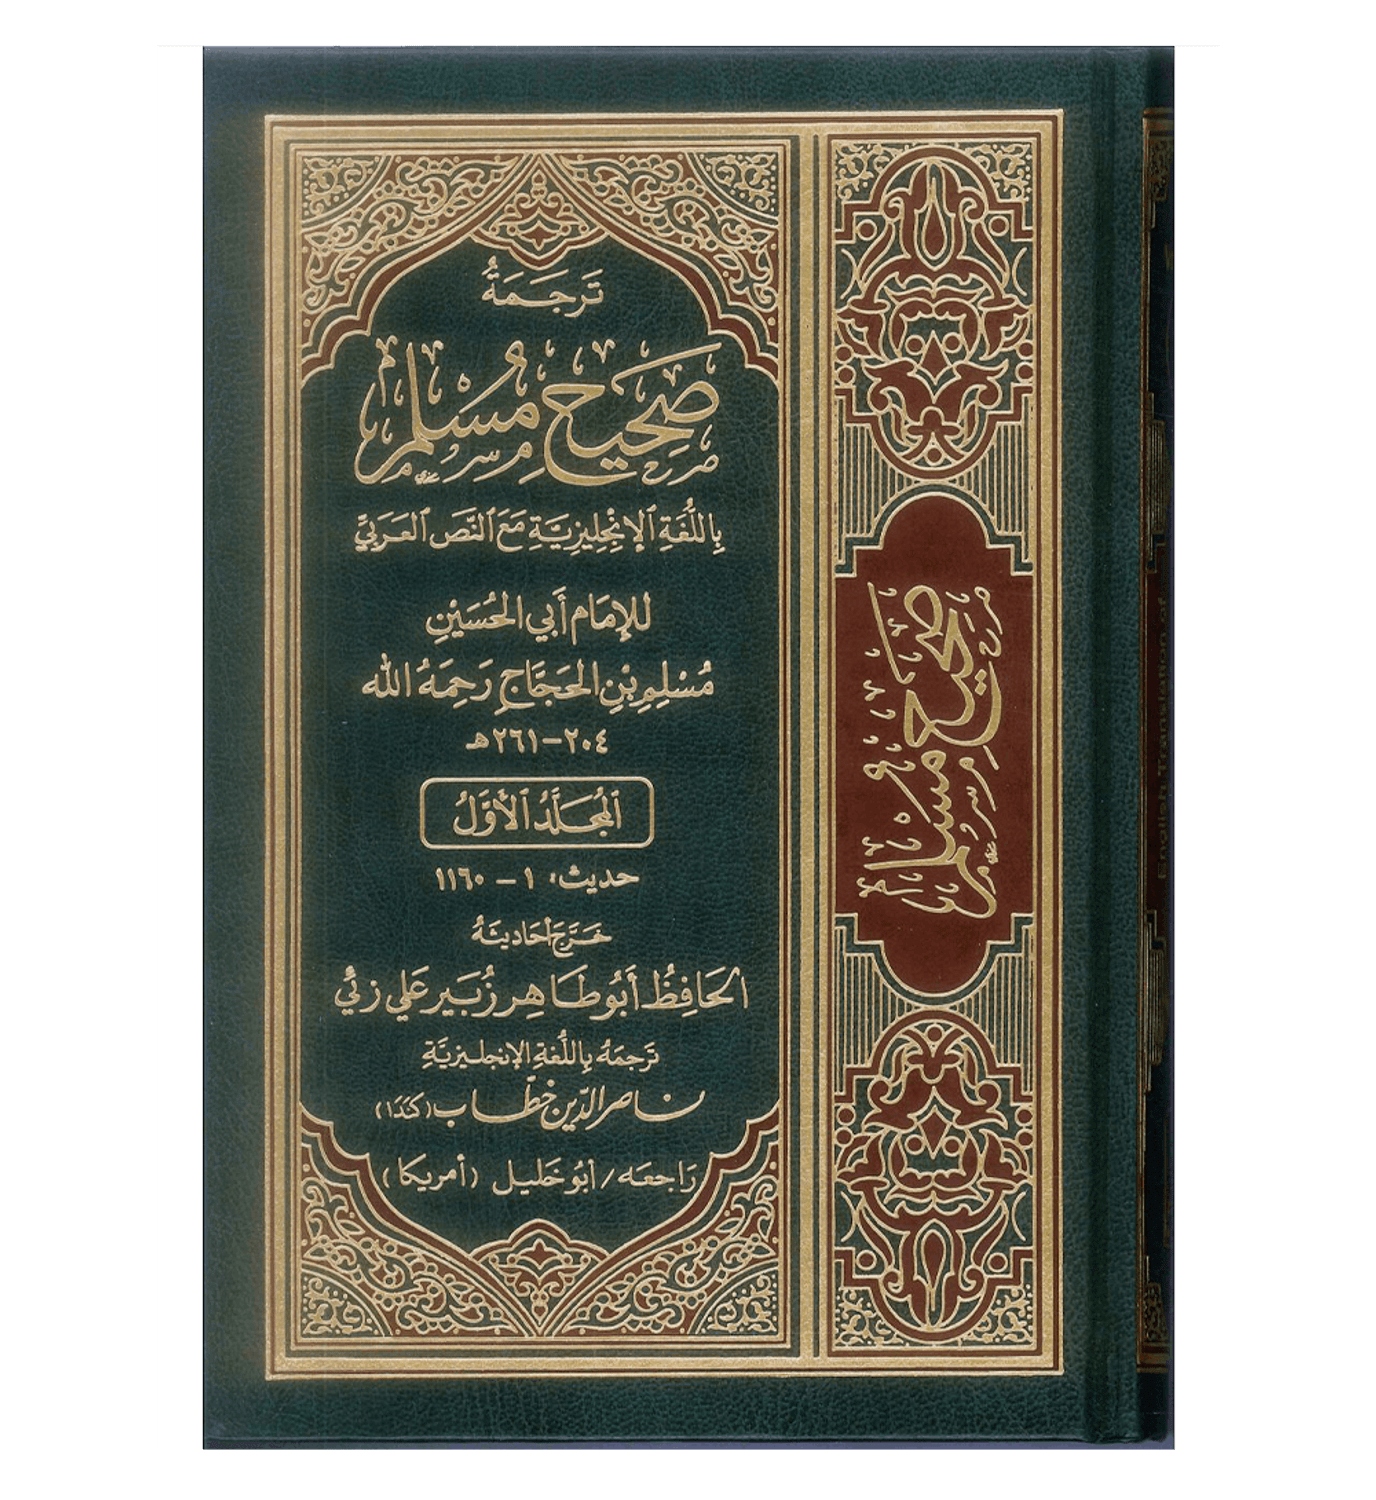 تَرجَمَةُ
صَحِيح مُسْلِم
بِاللُّغَةِ الإِنْجِلِيزِيَّةِ مَعَ النَّصِ العَرَبيِّ
للإِمَام أَبي الحُسَيْنِ
مُسْلِمِ بْنِ الحَجَّاجِ رَحِمَهُ الله
٢٠٤-٢٦١هـ
المُجَلَّدُ الأَوَّلُ
حديث: ١ - ١١٦٠
خَرَّجَ أَحَاديثَهُ
الحَافِظُ أَبُو طَاهِر زُبَير عَلي زئي
تَرجَمَهُ بِاللُّغَةِ الإنجليزيَّةِ
ناصر الدّين خطّاب (كَنَدَا)
رَاجعَه / أبُو خَليل (أمريكا)
صَحِيح مُسْلِم
English Translation of